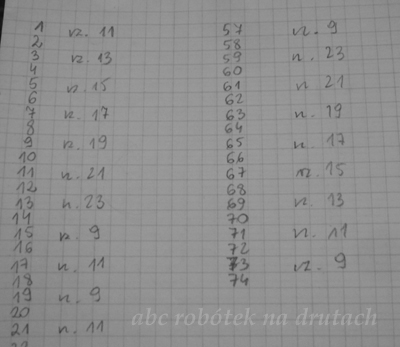 1 n. 11
2
3 n. 13
4
5 n. 15
6
7 n. 17
8
9 n. 19
10
11 n. 21
12
13 n. 23
14
15 n. 9
16
17 n. 11
18
19 n. 9
20
21 n. 11
57 n. 9
58
59 n. 23
60
61 n. 21
62
63 n. 19
64
65 n. 17
66
67 n. 15
68
69 n. 13
70
71 n. 11
72
73 n. 9
74
abc robótek na drutach